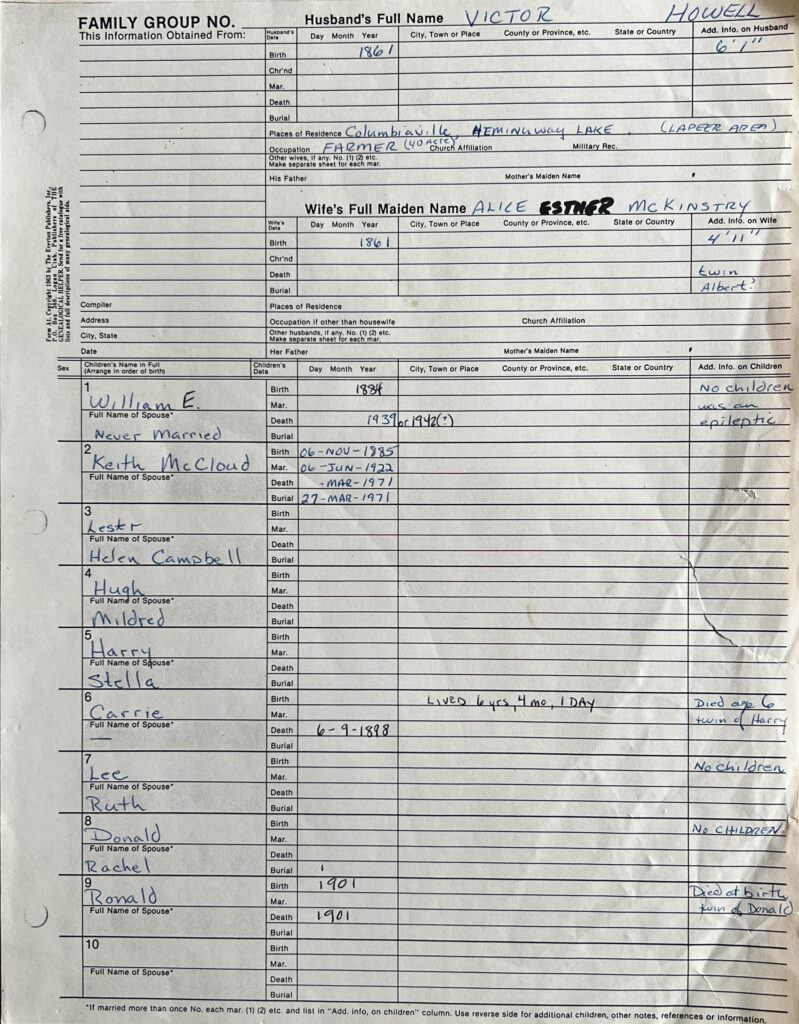 FAMILY GROUP NO. Husband's Full Name VICTOR HOWELL
This Information Obtained From: Husband's Data Day Month Year City, Town or Place County or Province, etc. State or Country Add. Info. on Husband
Birth 1861 6'1"
Chr'nd
Mar.
Death
Burial
Places of Residence Columbiaville, HEMINGWAY LAKE, (LAPEER AREA)
Occupation FARMER (40 Acre) Church Affiliation Military Rec.
Other wives, if any. No. (1) (2) etc.
Make separate sheet for each mar.
His Father Mother's Maiden Name
Wife's Full Maiden Name ALICE ESTHER McKINSTRY
Wife's Data Day Month Year City, Town or Place County or Province, etc. State or Country Add. Info. on Wife
Birth 1861 4'11"
Chr'nd
Death twin
Burial Albert?
Form A1. Copyright 1963 by The Everton Publishers, Inc.
P.O. Box 368, Logan, Utah. Publishers of THE
GENEALOGICAL HELPER. Send for a free catalogue with
lists and full descriptions of many genealogical aids.
Compiler Places of Residence
Address Occupation if other than housewife Church Affiliation
City, State Other husbands, if any. No. (1) (2) etc.
Make separate sheet for each mar.
Date Her Father Mother's Maiden Name
Sex Children's Name in Full (Arrange in order of birth) Children's Data Day Month Year City, Town or Place County or Province, etc. State or Country Add. Info. on Children
1 Birth 1884 No children
William E. Mar. was an
Full Name of Spouse* Death 1939 or 1942(?) epileptic
Never Married Burial
2 Birth 06-NOV-1885
Keith McCloud Mar. 06-JUN-1922
Full Name of Spouse* Death -MAR-1971
Burial 27-MAR-1971
3 Birth
Lester Mar.
Full Name of Spouse* Death
Helen Campbell Burial
4 Birth
Hugh Mar.
Full Name of Spouse* Death
Mildred Burial
5 Birth
Harry Mar.
Full Name of Spouse* Death
Stella Burial
6 Birth LIVED 6 yrs, 4 mo, 1 DAY Died age 6
Carrie Mar. twin of Harry
Full Name of Spouse* Death 6-9-1898
— Burial
7 Birth No children
Lee Mar.
Full Name of Spouse* Death
Ruth Burial
8 Birth NO CHILDREN
Donald Mar.
Full Name of Spouse* Death
Rachel Burial
9 Birth 1901 Died at birth
Ronald Mar. twin of Donald
Full Name of Spouse* Death 1901
Burial
10 Birth
Mar.
Full Name of Spouse* Death
Burial
*If married more than once No. each mar. (1) (2) etc. and list in "Add. info, on children" column. Use reverse side for additional children, other notes, references or information.